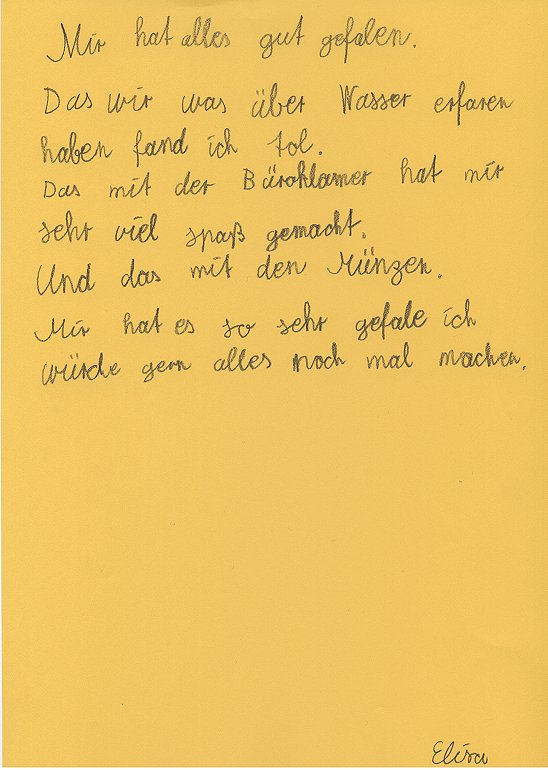 Mir hat alles gut gefalen.
Das wir was über Wasser erfaren
haben fand ich tol.
Das mit der Büroklamer hat mir
sehr viel spaß gemacht.
Und das mit den Münzen.
Mir hat es so sehr gefale ich
würde gern alles noch mal machen.
Elisa